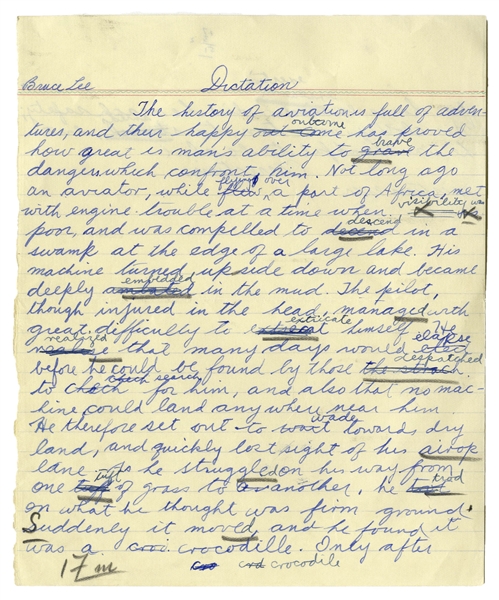 Bruce Lee Dictation
The history of aviation is full of adven-
outcome
tures, and their happy out came has proved
brave
how great is man's ability to grave the
dangers which confront him. Not long ago
flying over
an aviator, while flew a part of Africa, met
visibility was
with engine trouble at a time when
descend
poor, and was compelled to decend in a
swamp at the edge of a large lake. His
machine turned upside down and became
embedded
deeply in the mud. The pilot,
though injured in the head managed with
extricate
great difficulty to himself. He
realized elapse
that many days would
despatched
before he could be found by those
check search
to check for him, and also that no mac-
hine could land anywhere near him
wade
He therefore set out to wait towards dry
land, and quickly lost sight of his airop
lane as he struggled on his way from
tuft trod
one tuff of grass to another, he
on what he thought was firm ground.
Suddenly it moved, and he found it
was a croci crocodille. Only after
cro crd crocodile
17 m